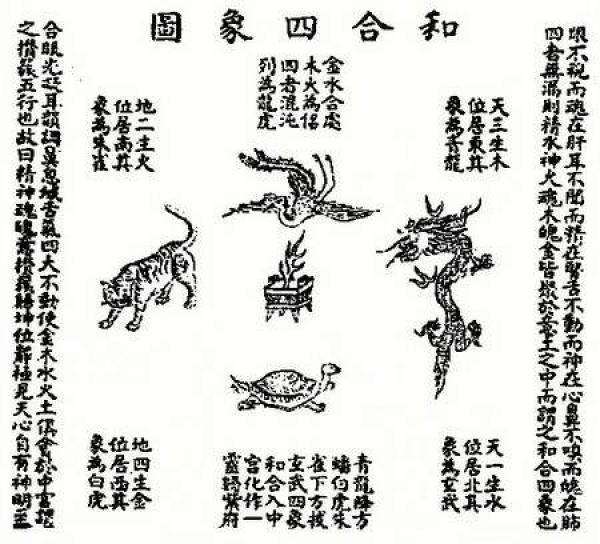 和合四象圖
眼不視而魂在肝耳不聞而精在腎舌不動而神在心鼻不嗅而魄在肺
四者無漏則精水神火魂木魄金皆聚於意土之中而謂之和合四象也
天三生木
位居東其
象為青龍
金水合處
木火為侶
四者混沌
列為龍虎
地二生火
位居南其
象為朱雀
天一生水
位居北其
象為玄武
青龍降方
蟠虎朱
雀下方拔
玄武四象
和合入中
宮化作一
靈歸紫府
地四生金
位居西其
象為白虎
合眼光凝耳韻調鼻息緘舌氣四大不動使金木水火土俱會於中宮謂
之攢簇五行也故曰精神魂魄意攢簇歸坤位靜極見天心自有神明至